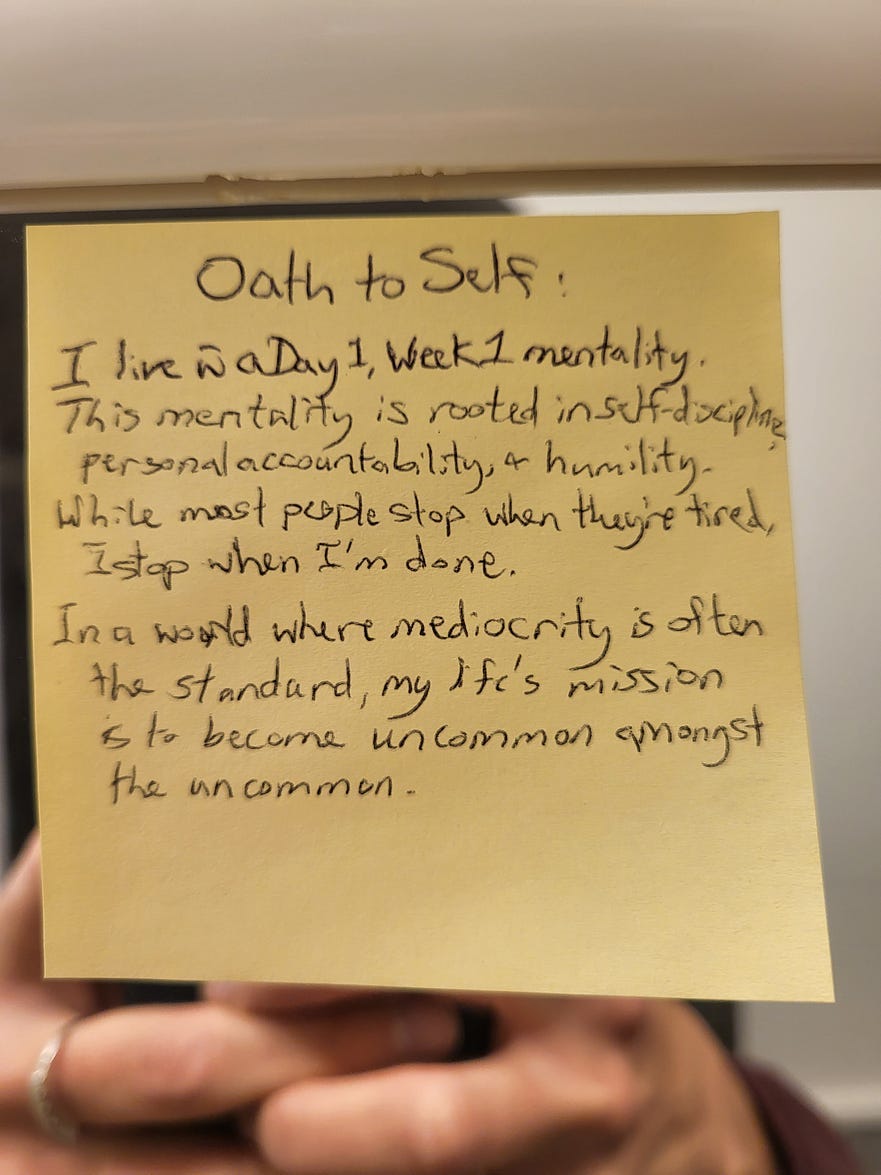 Oath to Self:
I live in a Day 1, Week 1 mentality.
This mentality is rooted in self-discipline,
personal accountability, & humility.
While most people stop when they're tired,
I stop when I'm done.
In a world where mediocrity is often
the standard, my life's mission
is to become uncommon amongst
the uncommon.